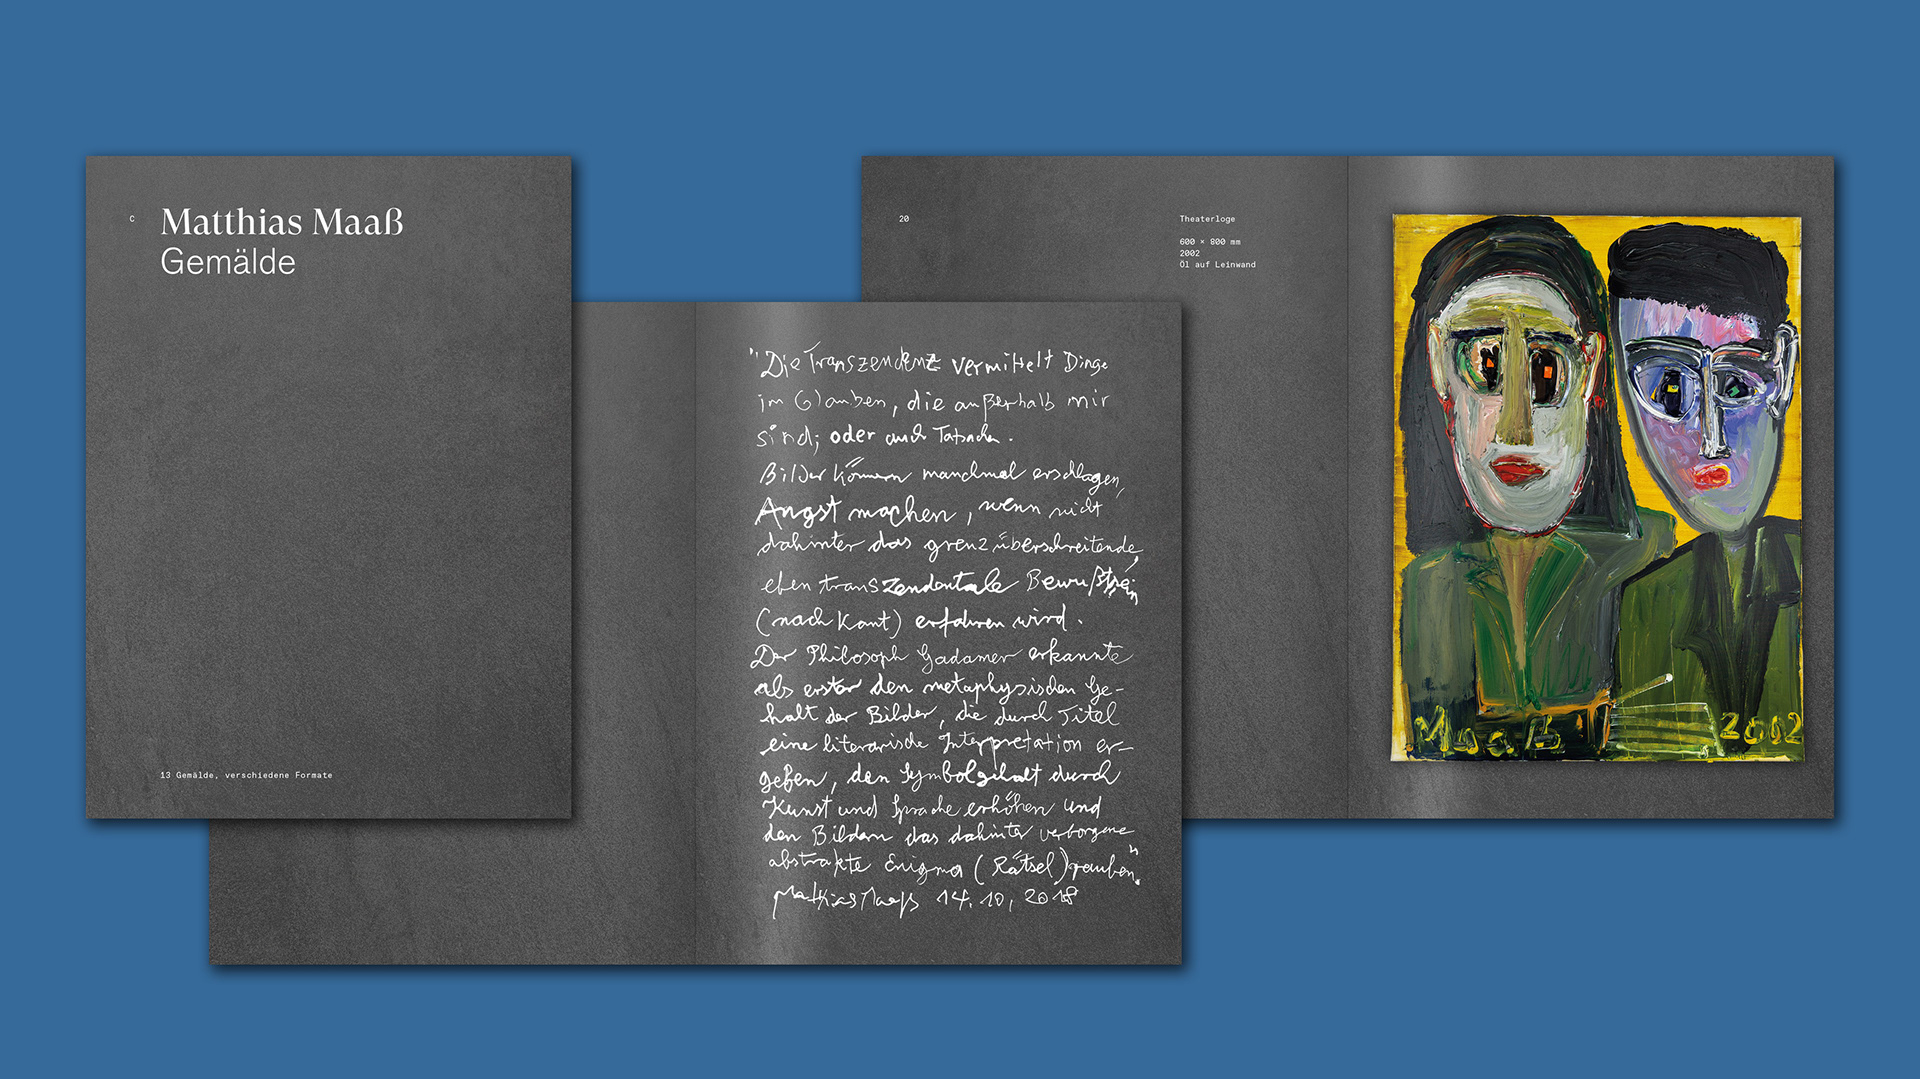 C
Matthias Maaß
Gemälde
13 Gemälde, verschiedene Formate
"Die Transzendenz vermittelt Dinge
im Glauben, die außerhalb mir
sind; oder auch Tatsachen.
Bilder können manchmal erschlagen,
Angst machen, wenn nicht
dahinter das grenzüberschreitende,
eben transzendentale Bewußtsein
(nach Kant) erfahren wird.
Der Philosoph Gadamer erkannte
als erster den metaphysischen Ge-
halt der Bilder, die durch Titel
eine literarische Interpretation er-
geben, den Symbolgehalt durch
Kunst und Sprache erhöhen und
den Bildern das dahinter verborgene
abstrakte Enigma (Rätsel) rauben".
Matthias Maaß 14.10.2018
20
Theaterloge
600 × 800 mm
2002
Öl auf Leinwand
Maaß 2002